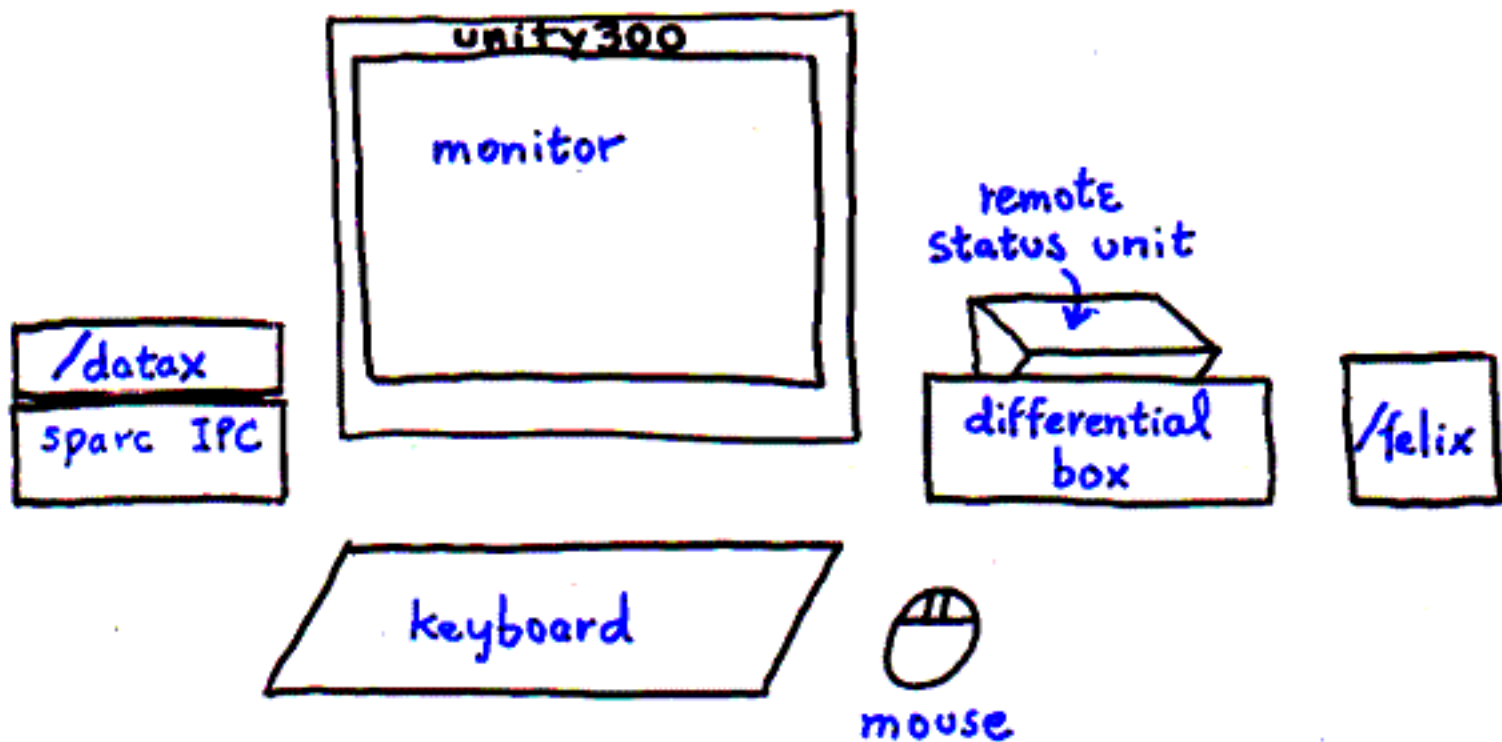 unity300
monitor
remote
status unit
/datax
sparc IPC
differential
box
/felix
keyboard
mouse